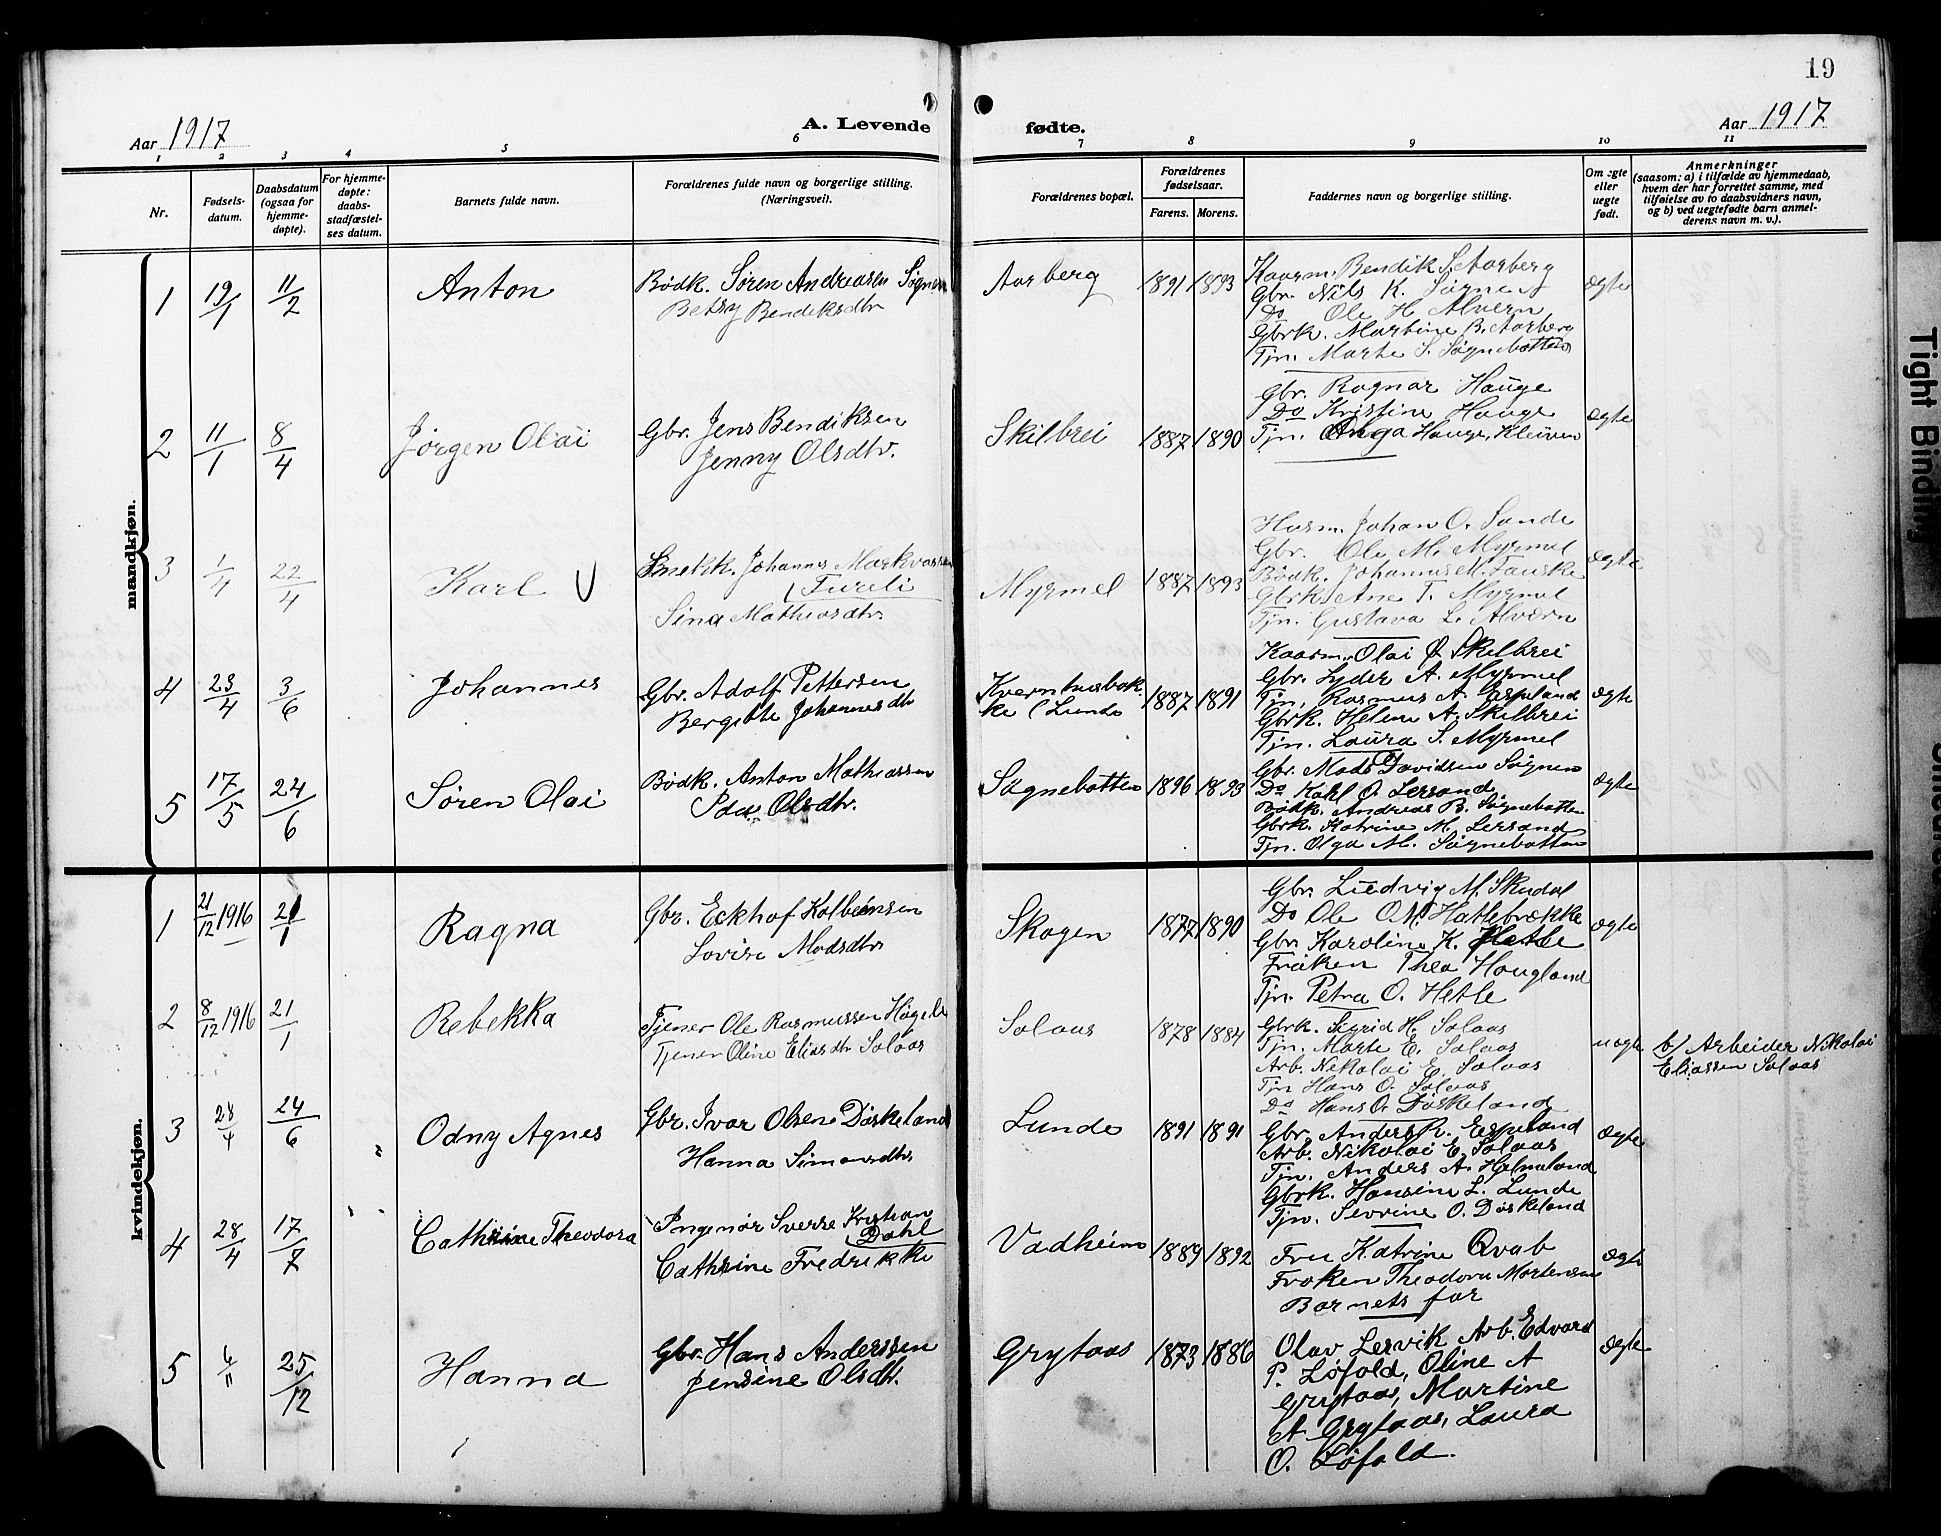 19
Aar 1917
A. Levende fødte.
Aar 1917
1 2 3 4 5 6 7 8 9 10 11
Nr.
Fødsels-
datum.
Daabsdatum
(ogsaa for
hjemme-
døpte).
For hjemme-
døpte:
daabs-
stadfæstel-
ses datum.
Barnets fulde navn.
Forældrenes fulde navn og borgerlige stilling.
(Næringsvei).
Forældrenes bopæl.
Forældrenes
fødselsaar.
Farens. Morens.
Faddernes navn og borgerlige stilling.
Om ægte
eller
uegte
født.
Anmerkninger
(saasom: a) i tilfælde av hjemmedaab,
hvem der har forrettet samme, med
tilføielse av to daabsvidners navn,
og b) ved uegtefødte barn anmel-
derens navn m. v.).
mandkjøn.
1 19/1 11/2 Anton
Bødk. Søren Andreassen Søgnen
Betsy Bendiksdtr
Aarberg 1891 1893
Kaarm. Bendik S. Aarberg
Gbr. Nils K. Søgnen
Do Ole H. Alvern
Gbrk. Martine B. Aarberg
Tjn. Marte S. Søgnebotten
ægte
2 11/1 8/4 Jørgen Olai
Gbr. Jens Bendiksen
Jenny Olsdtr.
Skilbrei 1887 1890
Gbr. Ragnar Hauge
Do Kristine Hauge
Tjn. Anga Hauge, Kleiven
ægte
3 1/4 22/4 Karl V
Snekk. Johannes Markvassen
(Tureli
Sina Mathiasdtr
Myrmel 1887 1893
Husm. Johan O. Sande
Gbr. Ole M. Myrmel
Bødk. Johannes M. Fauske
Gbrk. Ane T. Myrmel
Tjn. Gustava L. Alværn
ægte
4 23/4 3/6 Johannes
Gbr. Adolf Pettersen
Bergitte Johannesdtr
Kvernhusbak-
ke (Lunde 1887 1891
Kaarm. Olai J. Skilbrei
Gbr. Lyder A. Myrmel
Tjn. Rasmus A. Espeland
Gbrk. Helene A. Skilbrei
Tjn. Laura S. Myrmel
ægte
5 17/5 24/6 Søren Olai
Bødk. Anton Mathiassen
Ida Olsdtr.
Søgnebotten 1896 1893
Gbr. Mads Davidsen Søgnen
Do Karl O. Lersand
Bødk. Andreas B. Søgnebotten
Gbrk. Katrine M. Lersand
Tjn. Olga M. Søgnebotten
ægte
kvindekjøn.
1 21/12 1916 21/1 Ragna
Gbr. Eckhof Kolbeinsen
Lovise Madsdtr
Skogen 1877 1890
Gbr. Ludvig M. Skudal
Do Ole O. M. Hatlebrække
Gbr. Karoline K. Hetle
Frøken Thea Hougland
Tjn. Petra O. Hetle
ægte
2 8/12 1916 21/1 Rebekka
Tjener Ole Rasmussen
Tjener Oline Eliasdtr Solaas
Solaas 1878 1884
Gbrk. Sigrid H. Solaas
Tjn. Marte E. Solaas
Arb. Nikolai E. Solaas
Tjn Hans O. Solaas
Do Hans O. Døskeland
uægte
b) Arbeider Nikolai
Eliassen Solaas
3 28/4 24/6 " Odny Agnes
Gbr. Ivar Olsen Døskeland
Hanna Simonsdtr
Lunde 1891 1891
Gbr. Anders R. Espeland
Arb. Nikolai E. Solaas
Tjn. Anders A. Holmeland
Gbrk. Hansine L. Lunde
Tjn. Sevrine O. Døskeland
ægte
4 28/4 17/7 Cathrine Theodora
Ingeniør Sverre Kristian
(Dahl
Cathrine Fredrikke
Vadheim 1889 1892
Fru Katrine Qvab
Frøken Theodora Mortensen
Barnets far
ægte
5 6/11 25/12 Hanna
Gbr. Hans Anderssen
Jensine Olsdtr.
Grytaas 1873 1886
Olav Lervik, Arb. Edvard
P. Løfald, Oline A
Grytaas, Martine
A. Grytaas, Laura
O. Løfald.
ægte
Tight Binding